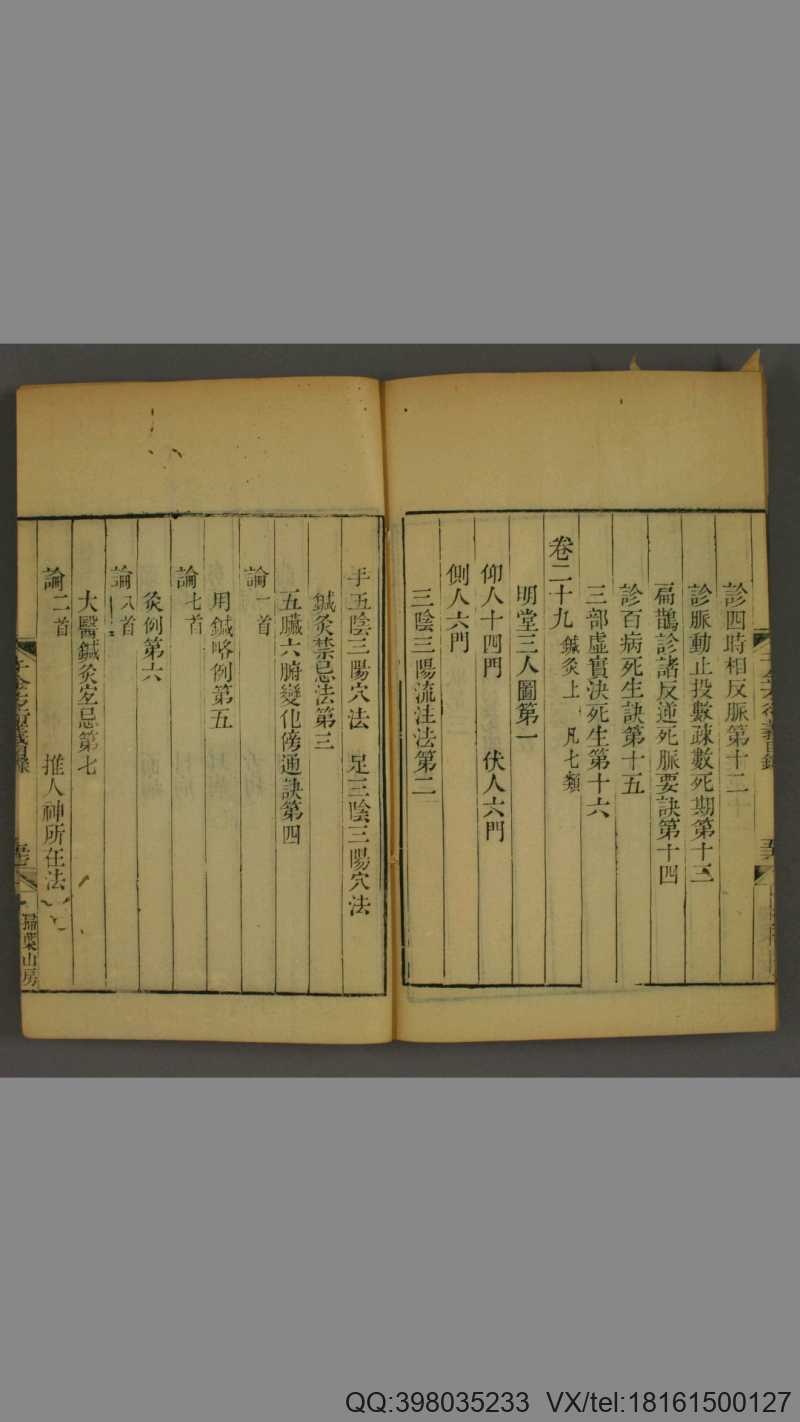 診四時相反脈第十二
診脈動止投數疎數死期第十三
扁鵲診諸反逆死脈要訣第十四
診百病死生訣第十五
三部虛實決死生第十六
卷二十九 鍼灸上 凡七類
明堂三人圖第一
仰人十四門 伏人六門
側人六門
三陰三陽流注法第二
手三陰三陽穴法 足三陰三陽穴法
鍼灸禁忌法第三
五臟六腑變化傍通訣第四
論一首
用鍼略例第五
論七首
灸例第六
論八首
大醫鍼灸宜忌第七
論二首 推人神所在法
掃葉山房
QQ:398035233 VX/tel:18161500127